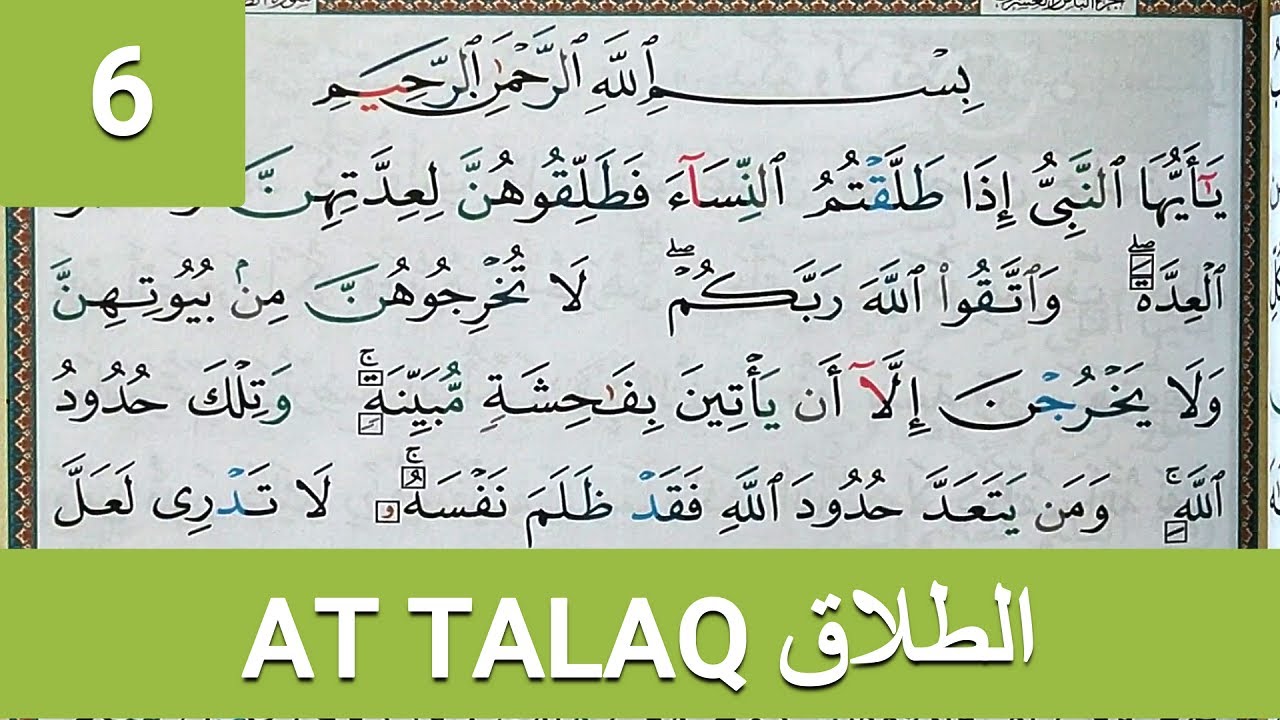 6
بِسْمِ ٱللَّهِ ٱلرَّحْمَٰنِ ٱلرَّحِيمِ
يَٰٓأَيُّهَا ٱلنَّبِىُّ إِذَا طَلَّقْتُمُ ٱلنِّسَآءَ فَطَلِّقُوهُنَّ لِعِدَّتِهِنَّ
ٱلْعِدَّةَ ۖ وَٱتَّقُوا۟ ٱللَّهَ رَبَّكُمْ ۖ لَا تُخْرِجُوهُنَّ مِنۢ بُيُوتِهِنَّ
وَلَا يَخْرُجْنَ إِلَّآ أَن يَأْتِينَ بِفَٰحِشَةٍ مُّبَيِّنَةٍ ۚ وَتِلْكَ حُدُودُ
ٱللَّهِ ۚ وَمَن يَتَعَدَّ حُدُودَ ٱللَّهِ فَقَدْ ظَلَمَ نَفْسَهُۥ ۚ لَا تَدْرِى لَعَلَّ
AT TALAQ الطلاق